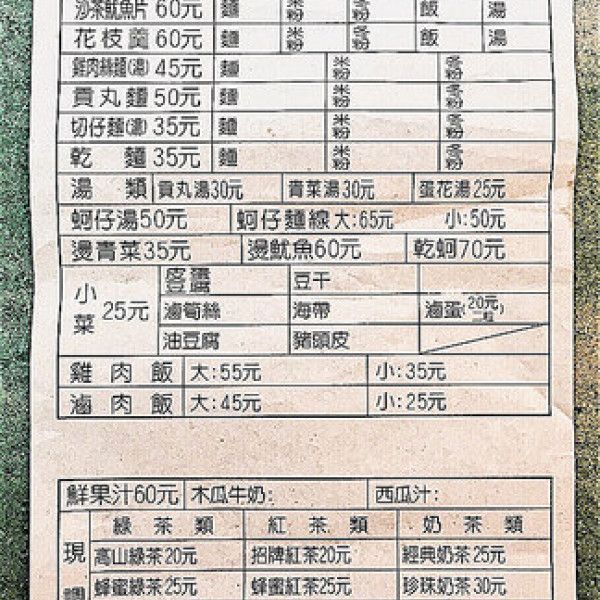 沙茶魷魚片 60元 麵 米粉 冬粉 飯 湯
花枝羹 60元 麵 米粉 冬粉 飯 湯
雞肉絲麵(湯) 45元 麵 米粉 冬粉
貢丸麵 50元 麵 米粉 冬粉
切仔麵(湯) 35元 麵 米粉 冬粉
乾麵 35元 麵 米粉 冬粉
湯類 貢丸湯30元 青菜湯30元 蛋花湯25元
蚵仔湯50元 蚵仔麵線 大:65元 小:50元
燙青菜35元 燙魷魚60元 乾蚵70元
小菜 25元
皮蛋 豆干
滷筍絲 海帶 滷蛋(20元二粒)
油豆腐 豬頭皮
雞肉飯 大:55元 小:35元
滷肉飯 大:45元 小:25元
鮮果汁60元 木瓜牛奶: 西瓜汁:
現調
綠茶類 紅茶類 奶茶類
高山綠茶20元 招牌紅茶20元 經典奶茶25元
蜂蜜綠茶25元 蜂蜜紅茶25元 珍珠奶茶30元